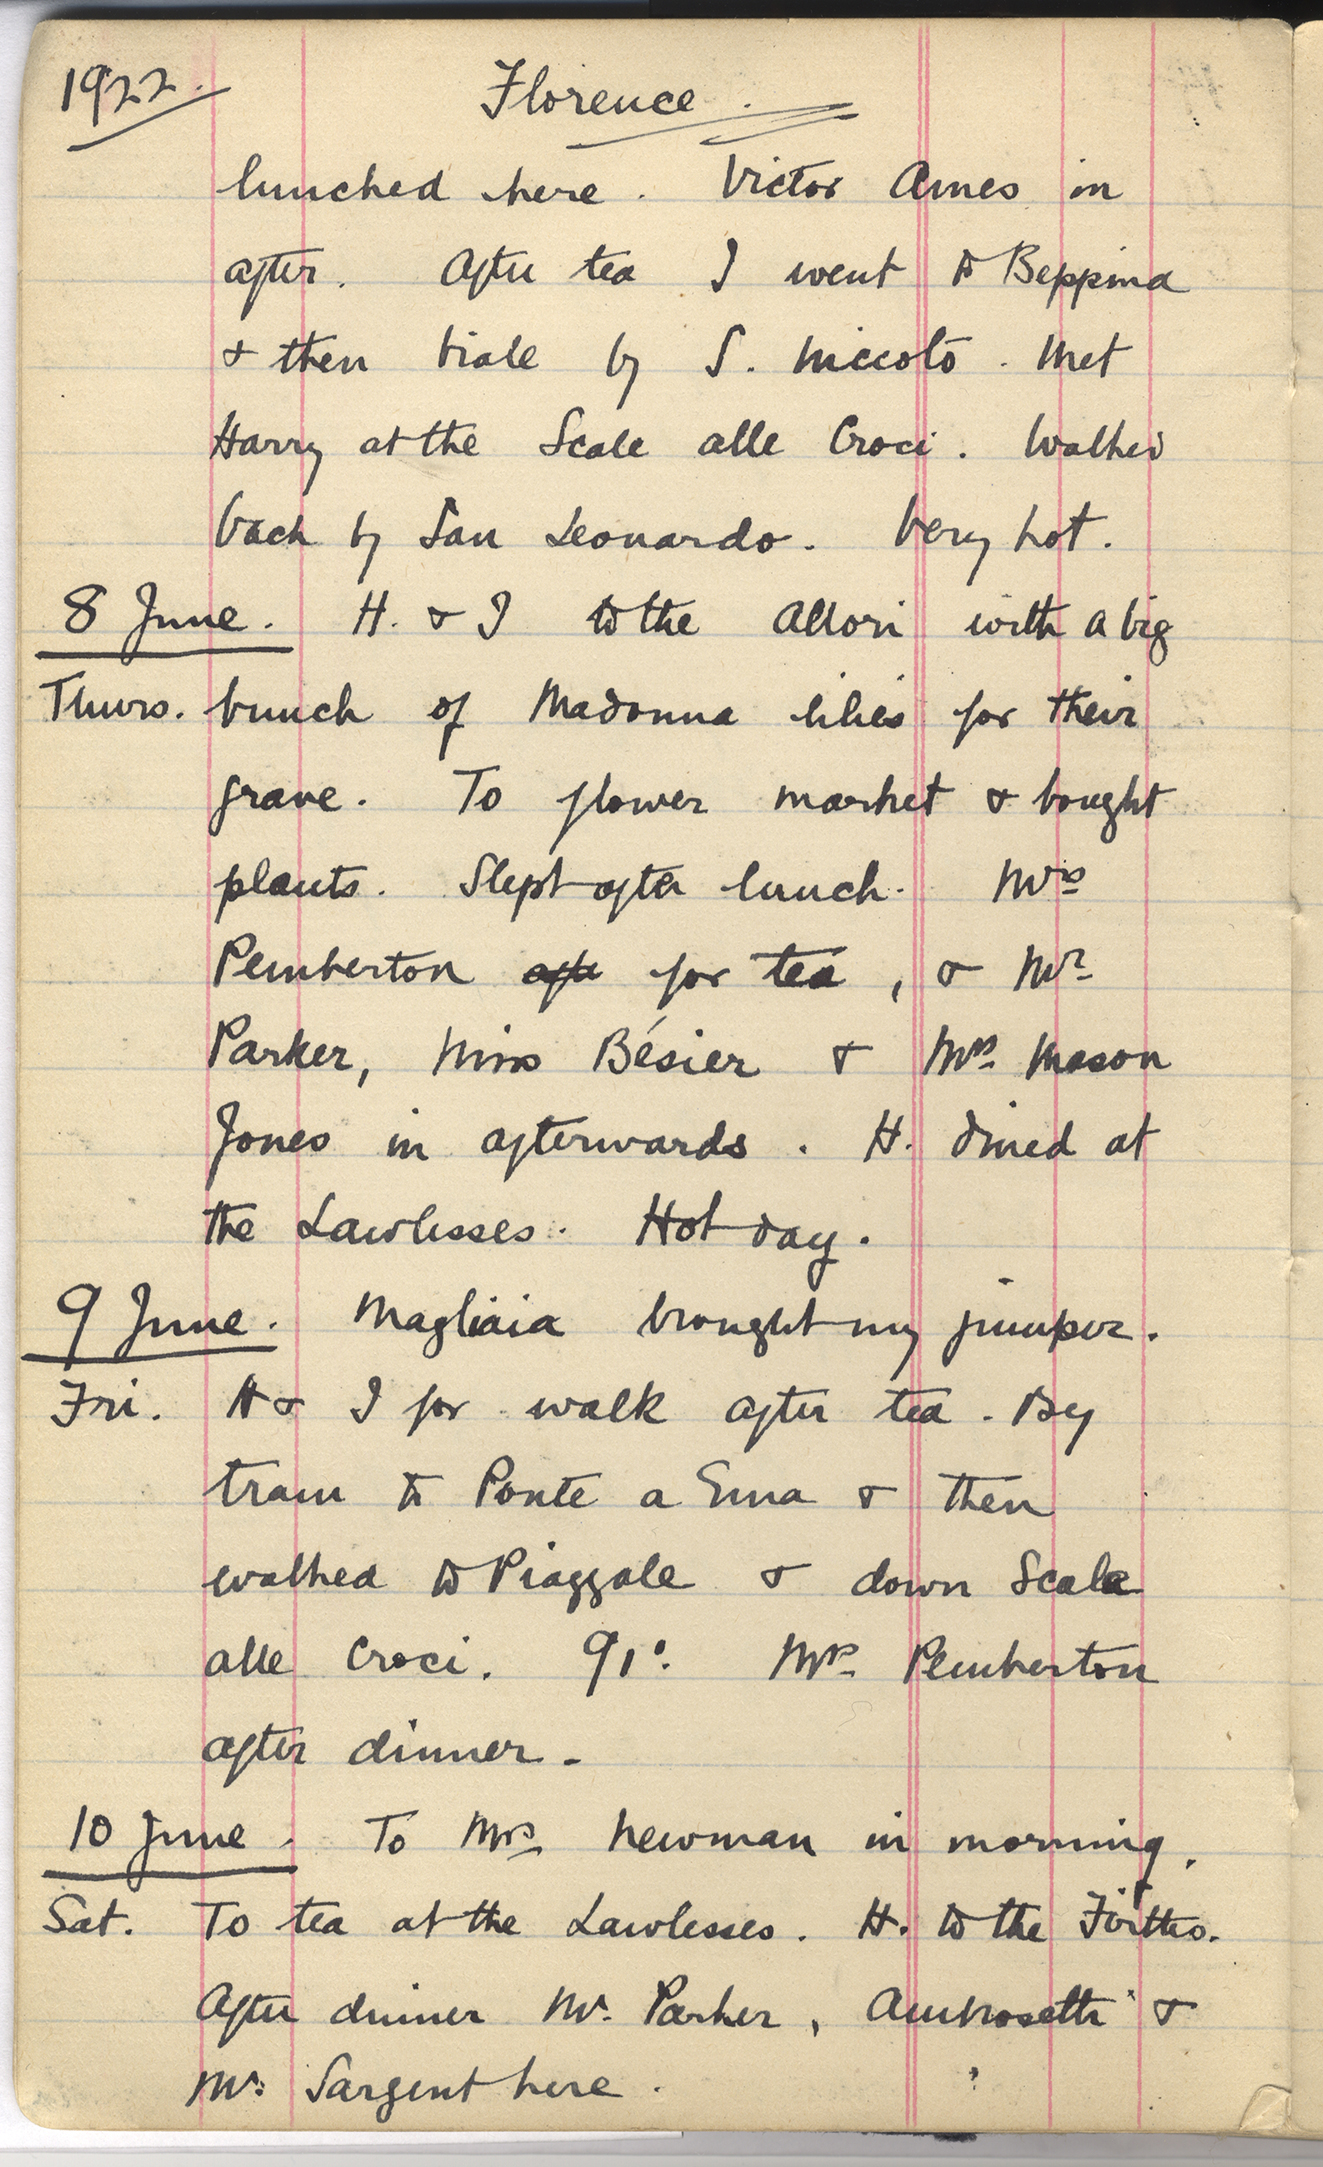 1922. Florence.
lunched here. Victor Ames in
after. After tea I went to Beppina
& then Viale by S. Niccolò. Met
Harry at the Scale alle Croci. Walked
back by San Leonardo. Very hot.
8 June. H. & I to the Allori with a big
Thurs. bunch of Madonna lilies for their
grave. To flower market & bought
plants. Slept after lunch. Mrs
Pemberton afte for tea, & Mr
Parker, Miss Bésier & Mrs Mason
Jones in afterwards. H. dined at
the Lawlesses. Hot day.
9 June. Magliaia brought my jumper.
Fri. H & I for walk after tea. By
tram to Ponte a Ema & then
walked to Piazzale & down Scala
alle Croci. 91°. Mrs Pemberton
after dinner.
10 June. To Mrs Newman in morning.
Sat. To tea at the Lawlesses. H. to the
After dinner Mr. Parker, Ambrosetti &
Mr. Sargent here.